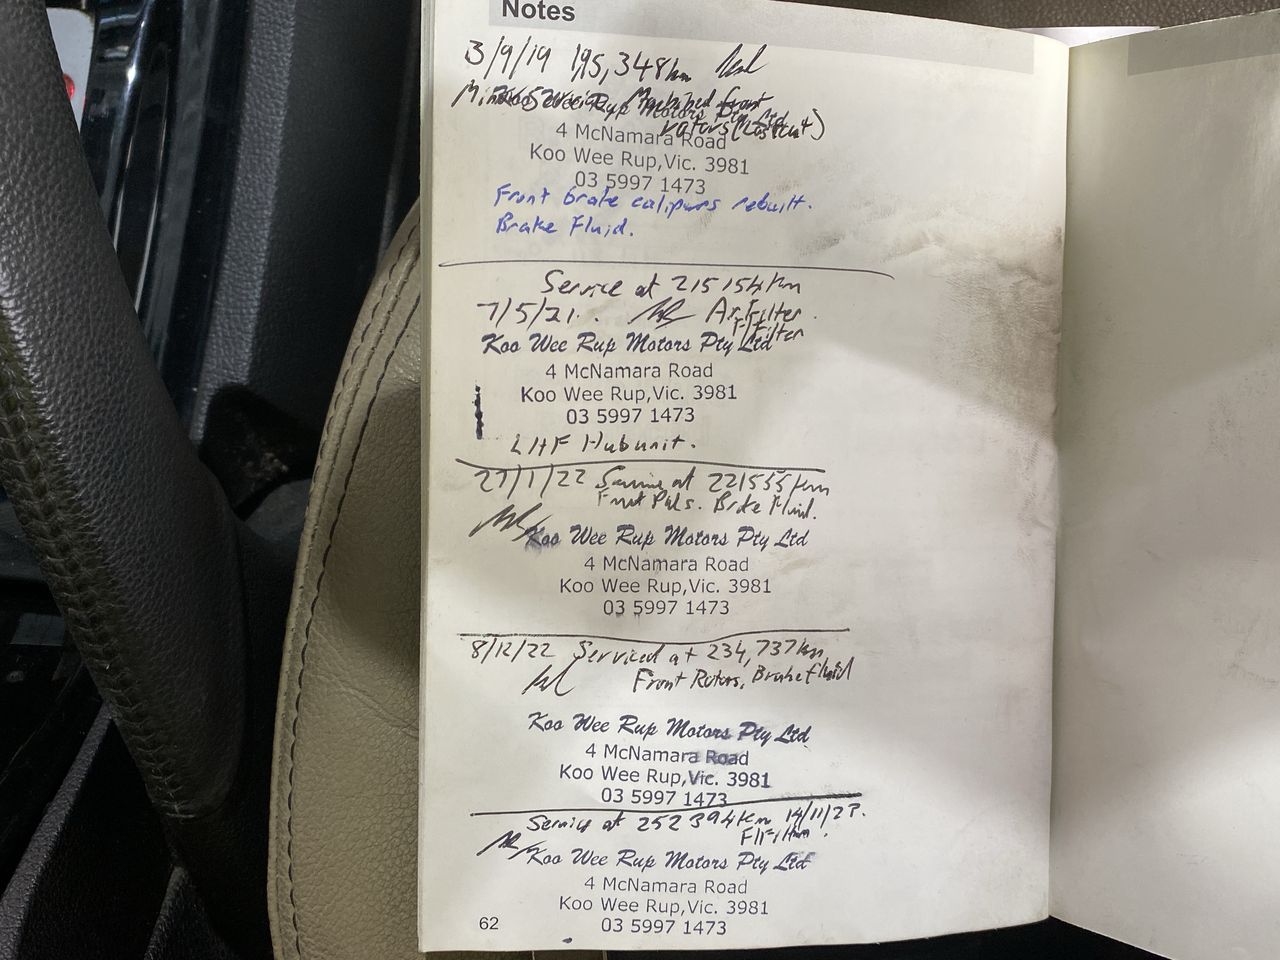 Notes
3/9/19 195,348km
Koo Wee Rup Motors Pty Ltd
Machined front
rotors (last cut)
4 McNamara Road
Koo Wee Rup,Vic. 3981
03 5997 1473
Front brake calipers rebuilt.
Brake Fluid.
Service at 215154km
7/5/21. Air Filter.
F/Filter
Koo Wee Rup Motors Pty Ltd
4 McNamara Road
Koo Wee Rup,Vic. 3981
03 5997 1473
LHF Hub unit.
27/1/22 Service at 221535km
Front Pads. Brake Fluid.
Koo Wee Rup Motors Pty Ltd
4 McNamara Road
Koo Wee Rup,Vic. 3981
03 5997 1473
8/12/22 Serviced at 234,737km
Front Rotors, Brake fluid
Koo Wee Rup Motors Pty Ltd
4 McNamara Road
Koo Wee Rup,Vic. 3981
03 5997 1473
Service at 252394km 14/11/23.
F/Filter.
Koo Wee Rup Motors Pty Ltd
4 McNamara Road
Koo Wee Rup,Vic. 3981
62
03 5997 1473